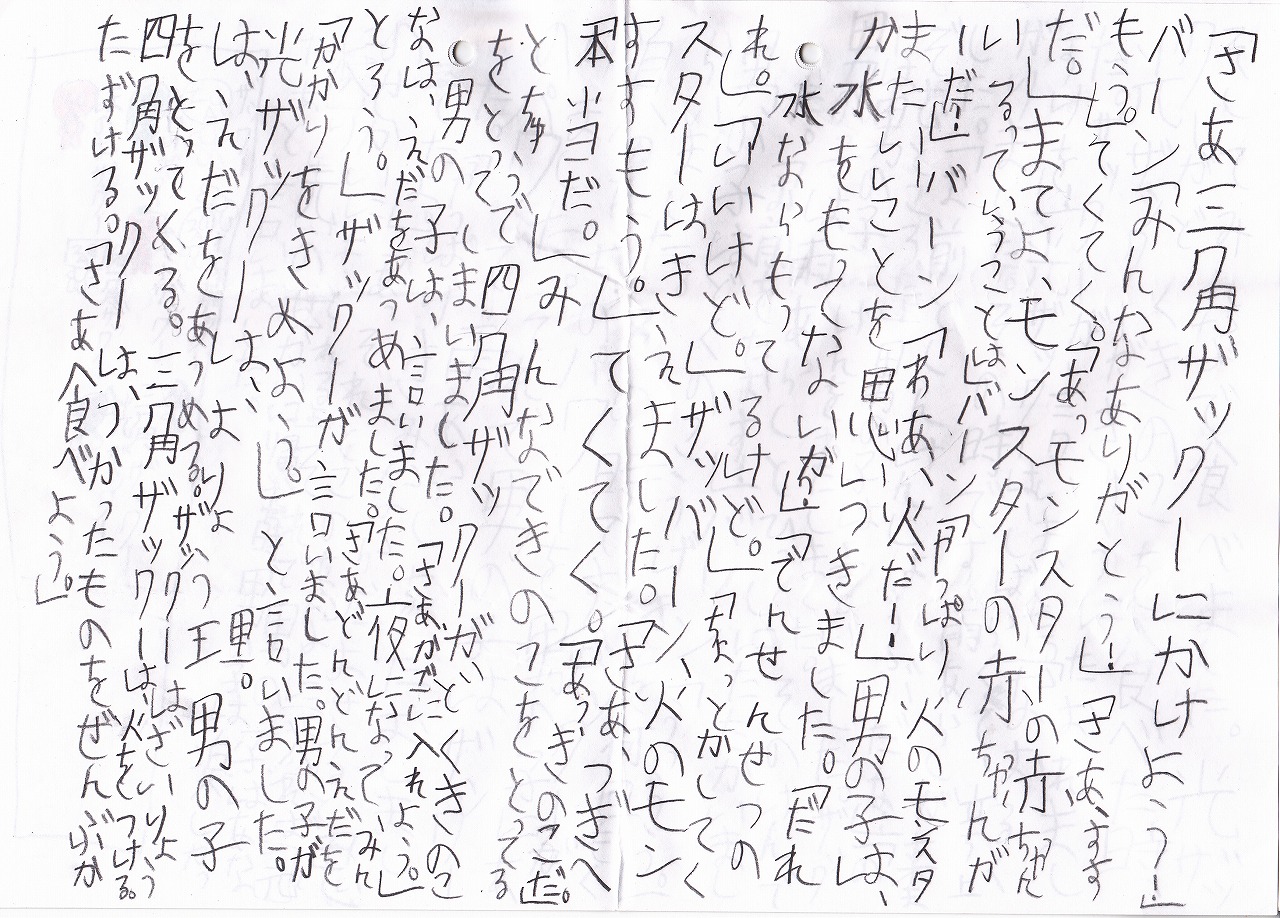 「さあ三角ザックーにかけよう?!」
バーン「みんなあありがとう!」「さあ、すす
もう。」てくてく。「あっモンスターの赤ちゃん
だ。」「まてよ、モンスターの赤ちゃんが
いるっていうことは」バーン「やっぱり火のモンスタ
ーだ!」バーン「わあ、火だー!」男の子は、
またいいことを思いつきました。「だれ
か水をもってないか!」「でんせつの
水ならもってるけど。」「ちょっとかしてく
れ。」「いいけど。」ザッバーン、火のモン
スターはきえました。「さあ、つぎへ
すすもう。」てくてく。「あっきのこだ。
本当だ。」みんなできのこをとってる
とちゅうで四角ザックーがどくきのこ
をとってしまいました。「さあかごに入れよう。」
男の子は、言いました。「さあどんどんえだを
とろう。」ザックーが言いました。男の子が
なは、えだをあつめました。夜になってみん
「かかりをきめよう。」と、言いました。
光ザックーは、しょうり理。男の子
は、えだをあつめる。ザックーはざいりょう
をとってくる。三角ザックーは、火をつける。
四角ザックーは、つかったものをぜんぶか
たずける。「さあ食べよう。」